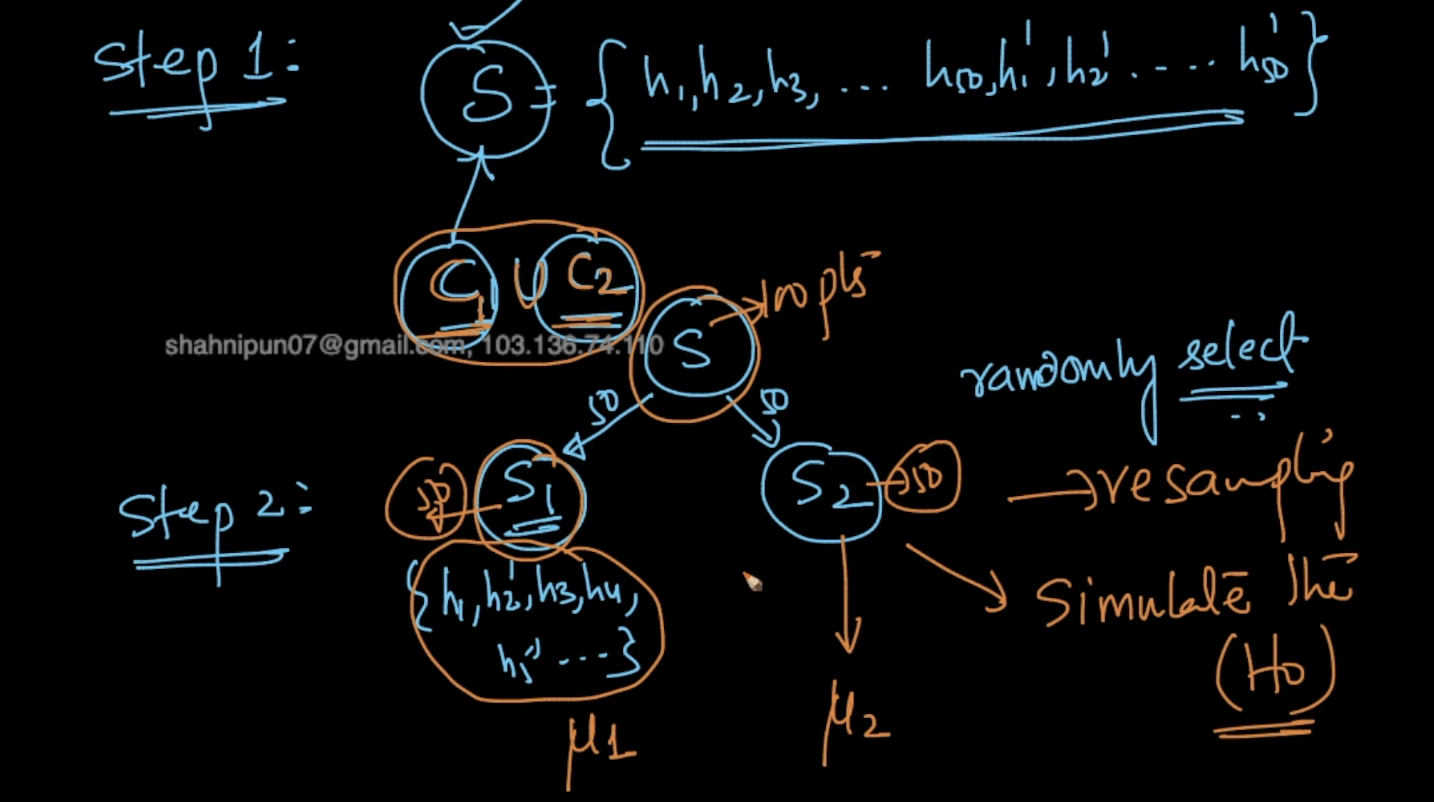 Step 1:
S = {h1, h2, h3, ... h50, h1', h2' ..... h50'}
C1 U C2
S → 100 pts
shahnipun07@gmail.com, 103.136.74.110
randomly select
50 50
Step 2:
50 ← S1
S2 → 50
→ resampling
{h1, h2', h3, h4,
h5' ....}
Simulate the
(H0)
μ1
μ2